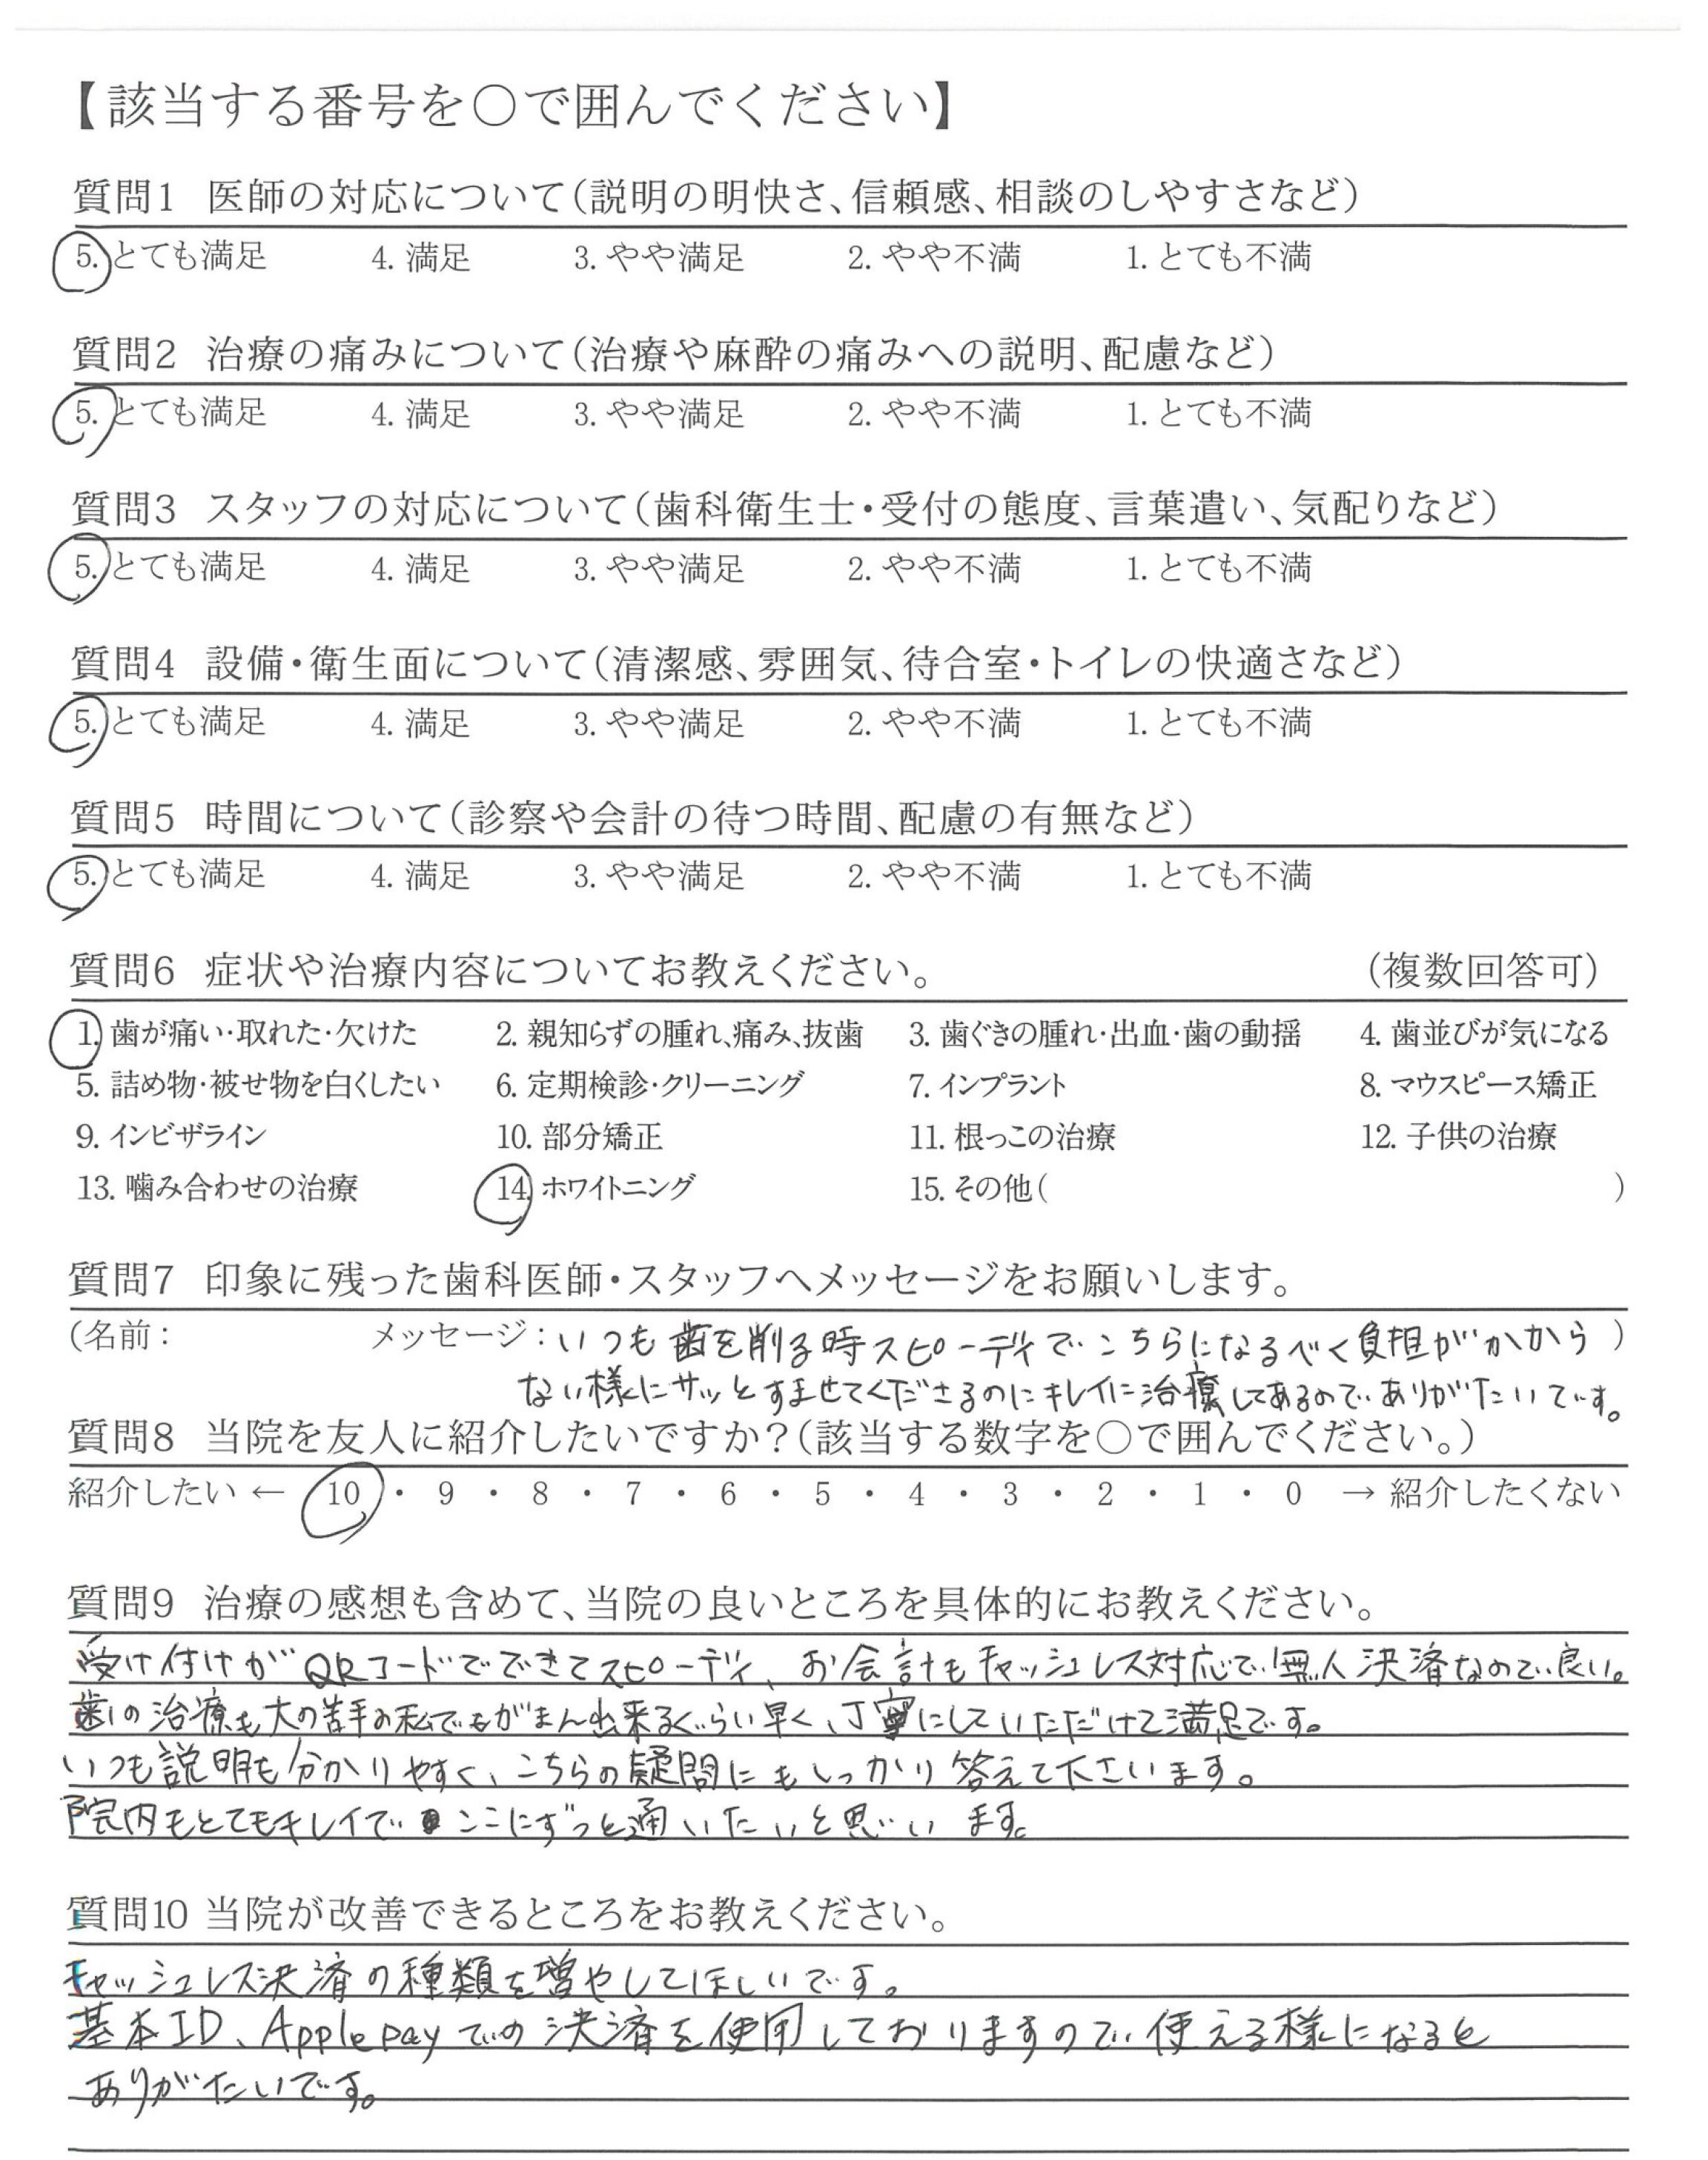 【該当する番号を〇で囲んでください】
質問1 医師の対応について(説明の明快さ、信頼感、相談のしやすさなど)
5. とても満足 4. 満足 3. やや満足 2. やや不満 1. とても不満
質問2 治療の痛みについて(治療や麻酔の痛みへの説明、配慮など)
5. とても満足 4. 満足 3. やや満足 2. やや不満 1. とても不満
質問3 スタッフの対応について(歯科衛生士・受付の態度、言葉遣い、気配りなど)
5. とても満足 4. 満足 3. やや満足 2. やや不満 1. とても不満
質問4 設備・衛生面について(清潔感、雰囲気、待合室・トイレの快適さなど)
5. とても満足 4. 満足 3. やや満足 2. やや不満 1. とても不満
質問5 時間について(診察や会計の待つ時間、配慮の有無など)
5. とても満足 4. 満足 3. やや満足 2. やや不満 1. とても不満
質問6 症状や治療内容についてお教えください。 (複数回答可)
1. 歯が痛い・取れた・欠けた 2. 親知らずの腫れ、痛み、抜歯 3. 歯ぐきの腫れ・出血・歯の動揺 4. 歯並びが気になる
5. 詰め物・被せ物を白くしたい 6. 定期検診・クリーニング 7. インプラント 8. マウスピース矯正
9. インビザライン 10. 部分矯正 11. 根っこの治療 12. 子供の治療
13. 噛み合わせの治療 14. ホワイトニング 15. その他( )
質問7 印象に残った歯科医師・スタッフへメッセージをお願いします。
(名前: メッセージ:いつも歯を削る時スピーディでこちらになるべく負担がかから)
ない様にサッとすませてくださるのにキレイに治療してあるのでありがたいです。
質問8 当院を友人に紹介したいですか?(該当する数字を〇で囲んでください。)
紹介したい ← 10 ・ 9 ・ 8 ・ 7 ・ 6 ・ 5 ・ 4 ・ 3 ・ 2 ・ 1 ・ 0 → 紹介したくない
質問9 治療の感想も含めて、当院の良いところを具体的にお教えください。
受け付けがQRコードでできてスピーディ、お会計もキャッシュレス対応で無人決済なので良い。
歯の治療も大の苦手の私でもがまん出来るくらい早く、丁寧にしていただけて満足です。
いつも説明も分かりやすく、こちらの疑問にもしっかり答えて下さいます。
院内もとてもキレイでここにずっと通いたいと思います。
質問10 当院が改善できるところをお教えください。
キャッシュレス決済の種類を増やしてほしいです。
基本ID、Apple payでの決済を使用しておりますので使える様になると
ありがたいです。